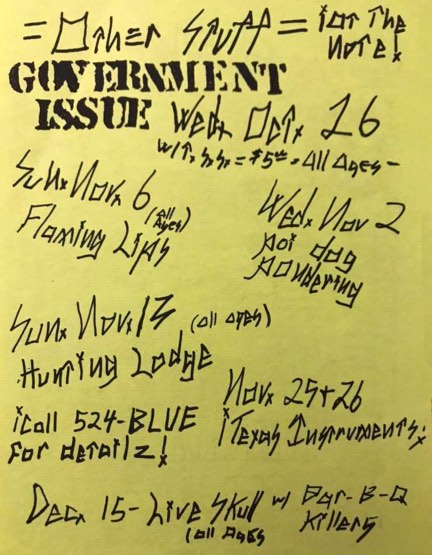 = Other Stuff = ¡ot the
note!
GOVERNMENT
ISSUE Wed. Oct. 26
w/T. S.S. = $5ºº = All Ages -
Sun. Nov. 6 (all ages)
Flaming Lips
Wed. Nov 2
poi dog
pondering
Sun. Nov. 13 (all ages)
Hunting Lodge
¡Call 524-BLUE
for detailz!
Nov. 25+26
¡Texas Instruments!
Dec. 15- Live Skull w/ Bar-B-Q
Killers
(all ages